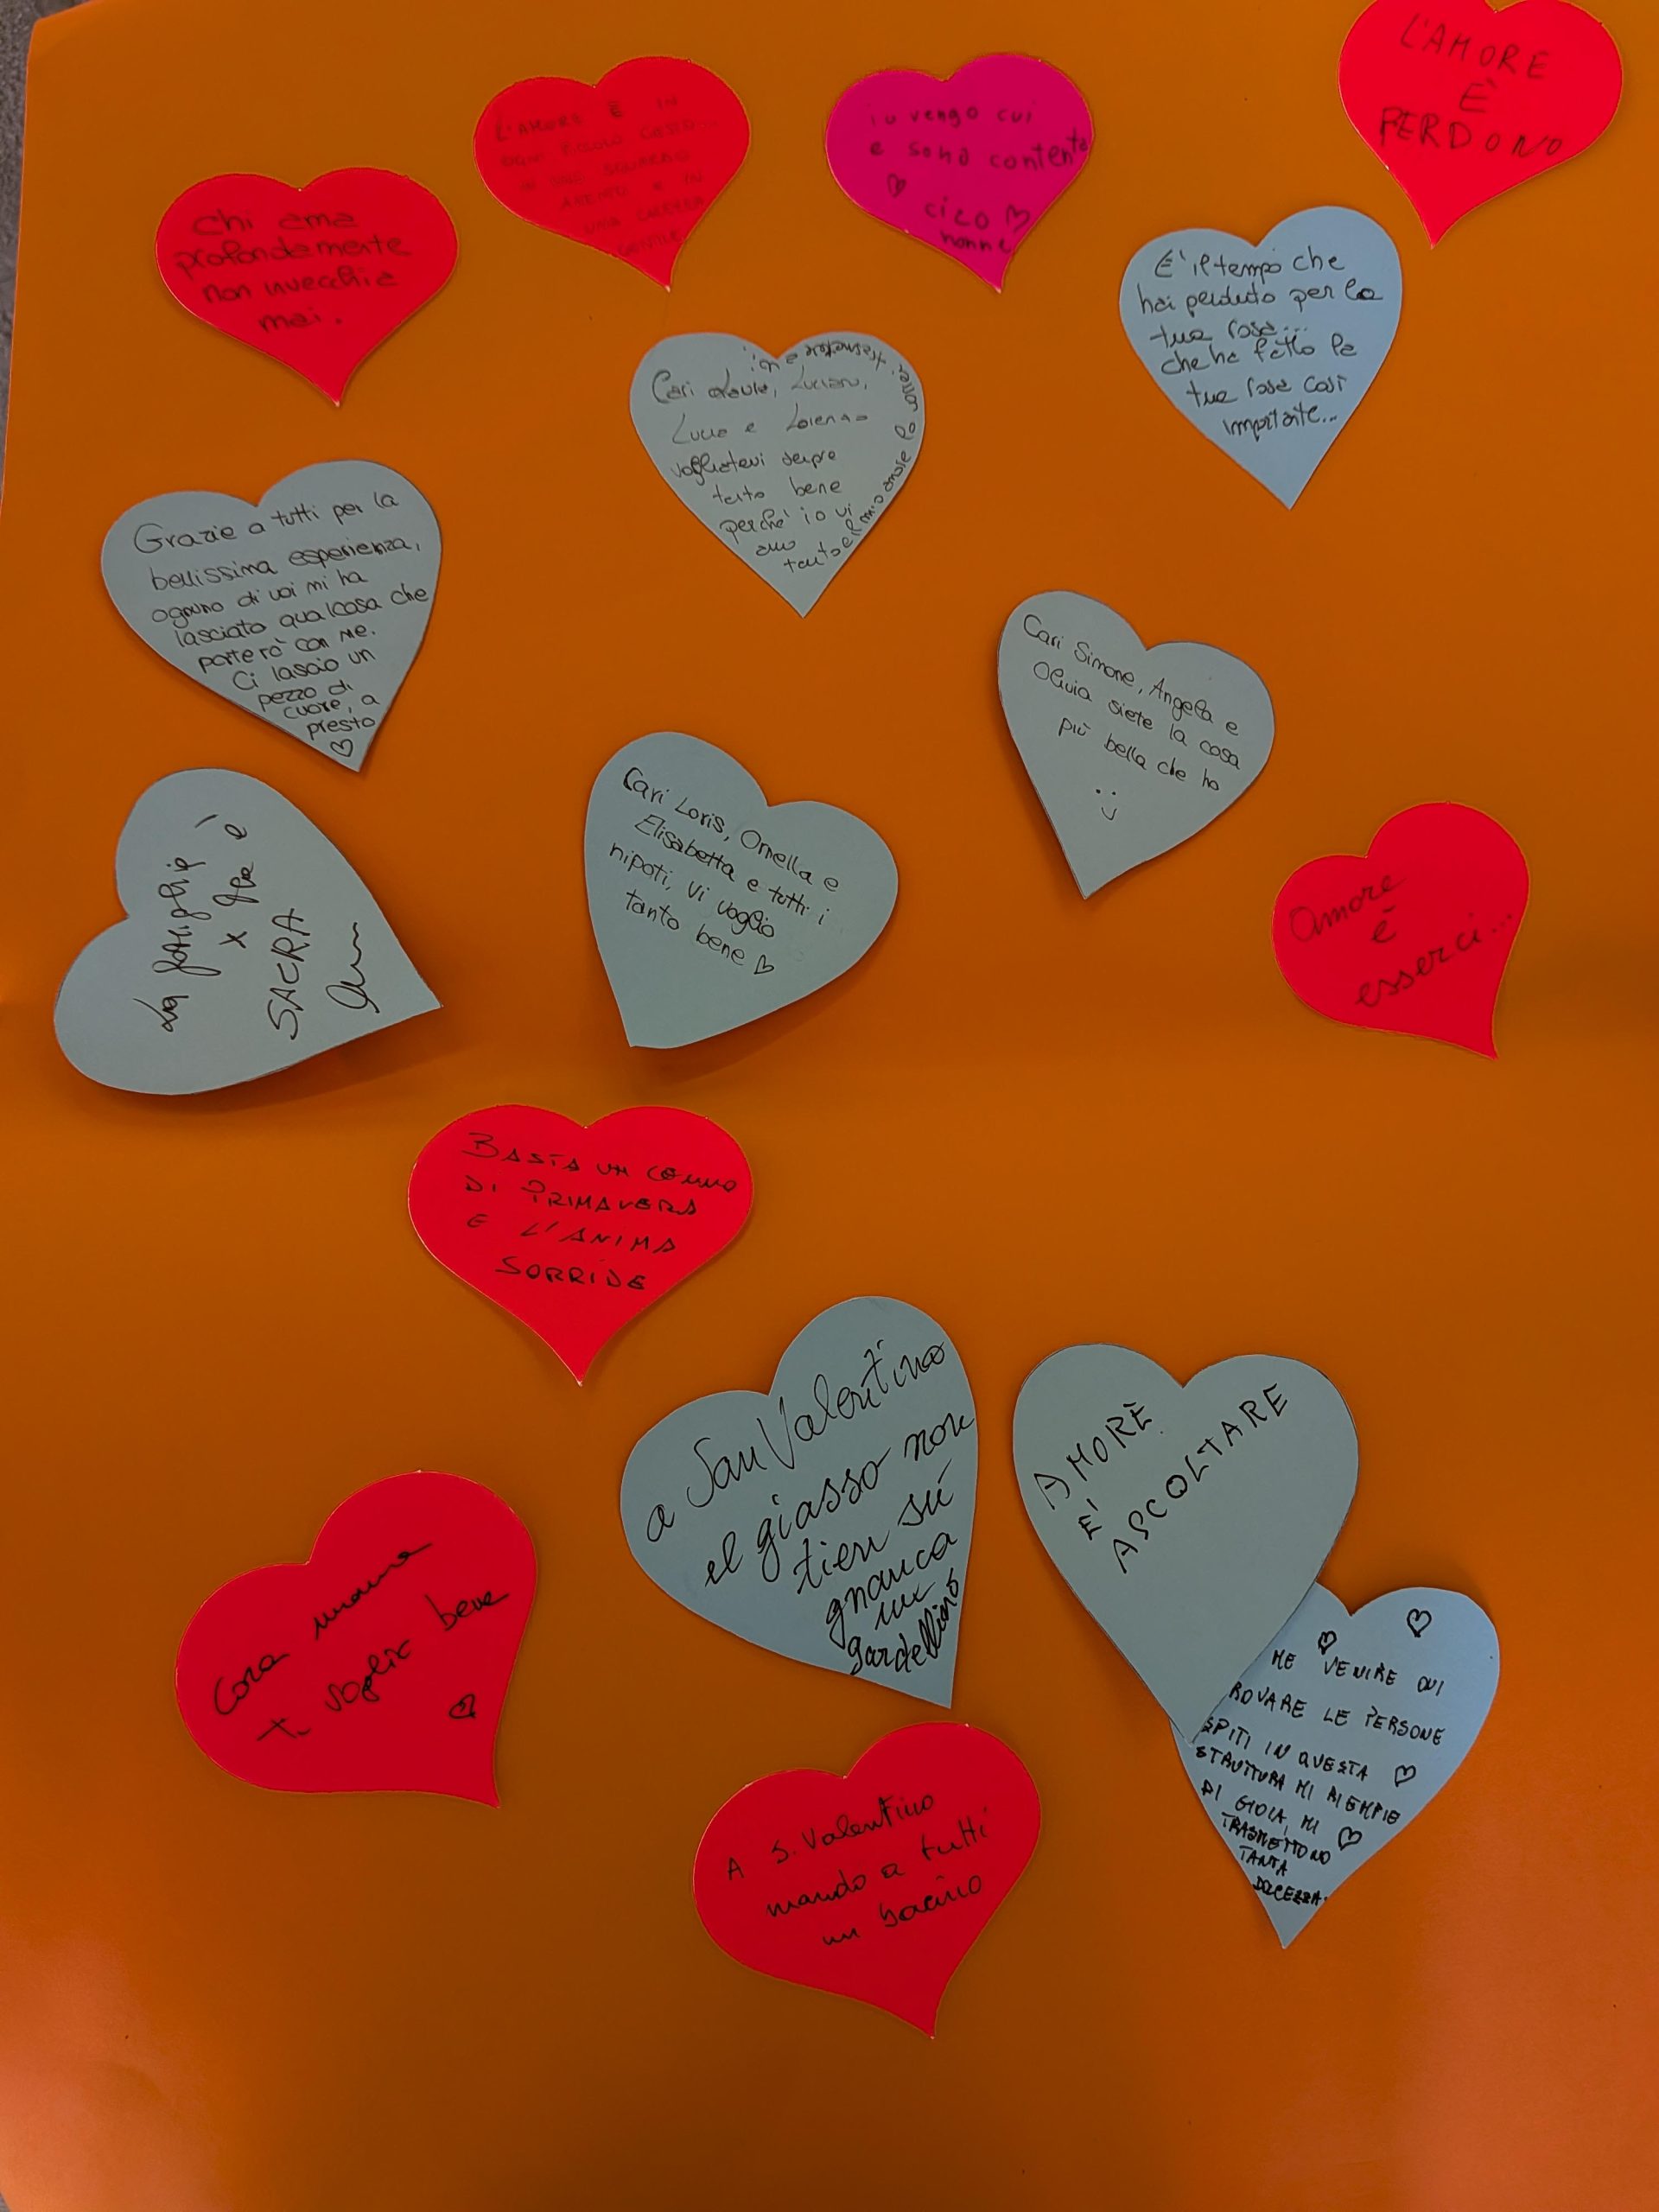 L'AMORE
È
PERDONO
L'AMORE È IN
OGNI PICCOLO GESTO...
IN UNO SGUARDO
ATTENTO E IN
UNA CAREZZA
GENTILE
io vengo cui
e sono contenta
♡ ciao ♡
nonne
Chi ama
profondamente
non invecchia
mai.
E' il tempo che
hai perduto per la
tua rosa...
che ha fatto la
tua rosa così
importante...
Cari Luciano,
Lucia e Lorenzo
vogliatevi sempre
tanto bene
perché io vi
amo
tanto e il mio amore lo vorrei trasmettere a voi
Grazie a tutti per la
bellissima esperienza,
ognuno di voi mi ha
lasciato qualcosa che
porterò con me.
Ci lascio un
pezzo di
cuore, a
presto
♡
Cari Simone, Angela e
Olivia siete la cosa
più bella che ho
:)
Cari Loris, Ornella e
Elisabetta e tutti i
nipoti, vi voglio
tanto bene ♡
La famiglia
x me è
SACRA
Amore
è
esserci...
BASTA UN COMUO
DI PRIMAVERA
E L'ANIMA
SORRIDE
a San Valentino
el giasso non
tien sú
gnanca
un
gardellino
AMORE
E'
ASCOLTARE
Cara mamma
ti voglio bene
♡
ME VENIRE QUI
ROVARE LE PERSONE
SPITI IN QUESTA ♡
STRUTTURA MI RIEMPIE
DI GIOIA, MI ♡
TRASMETTONO
TANTA
DOLCEZZA.
A S. Valentino
mando a tutti
un bacino